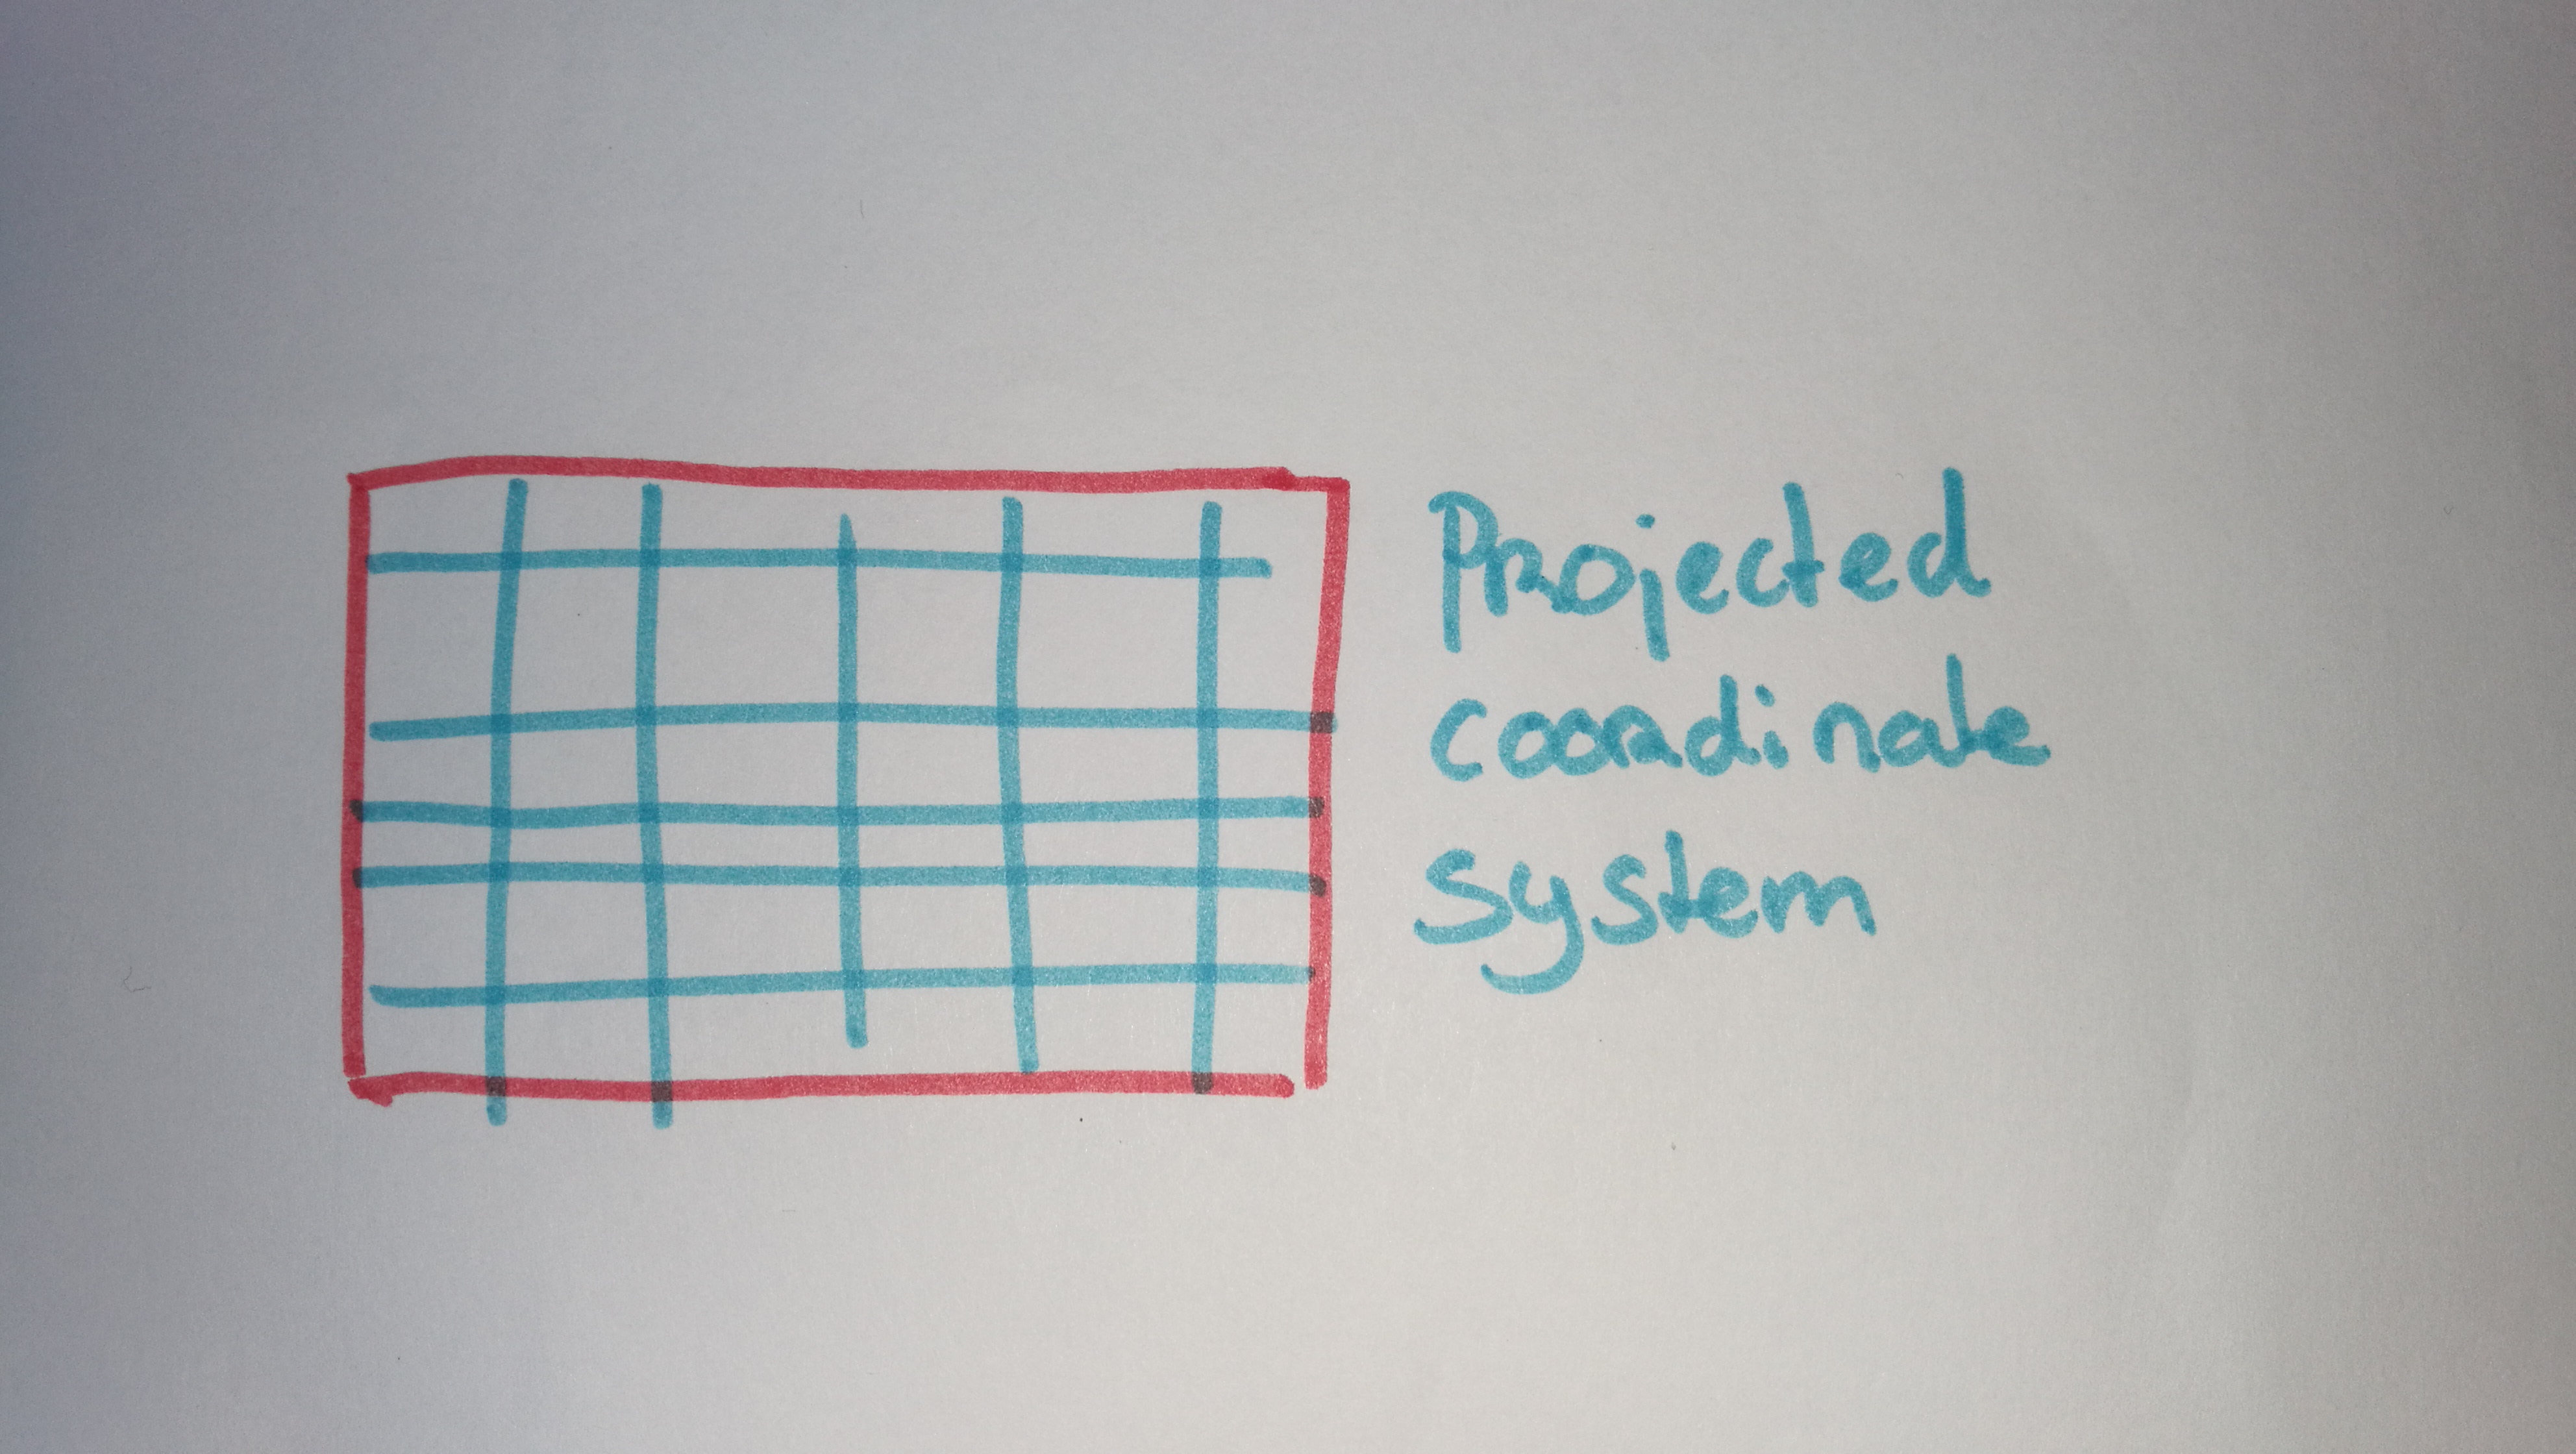 Projected
coordinate
system